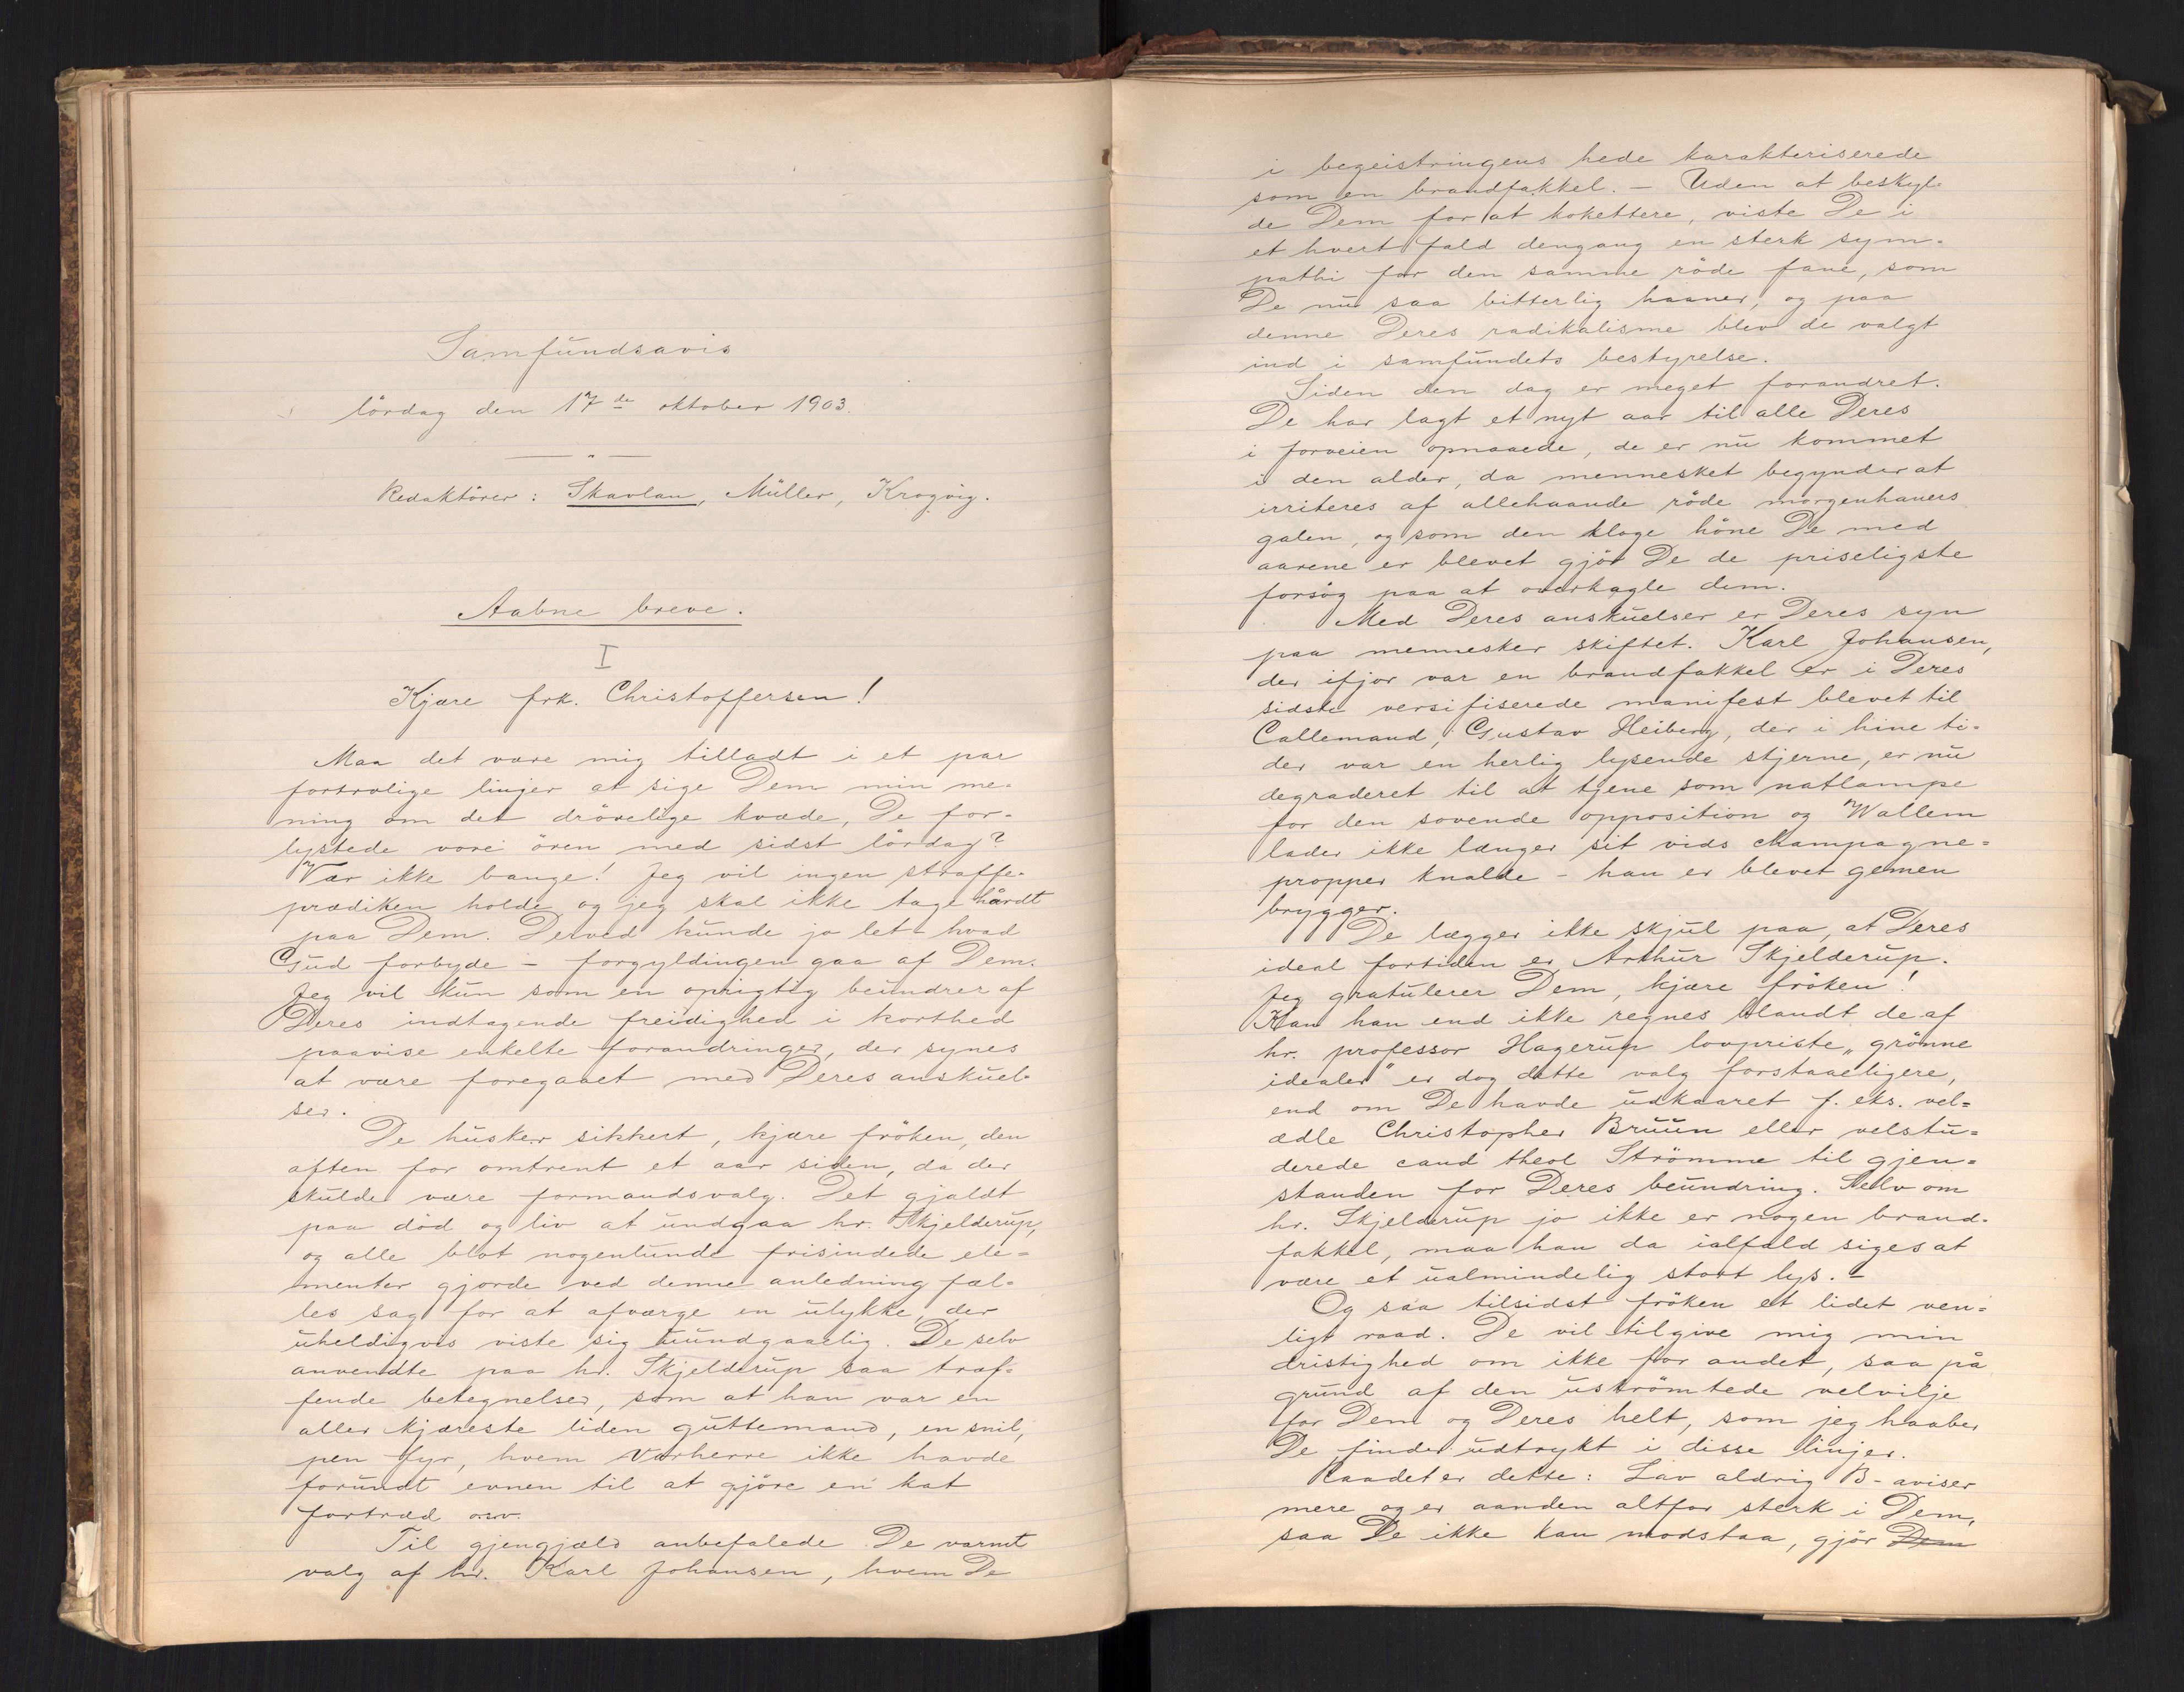 Samfundsavis
lördag den 17de oktober 1903.
Redaktörer: Skavlan, Müller, Krogvig.
Aabne breve.
I
Kjære frk. Christoffersen!
Maa det være mig tilladt i et par
fortrolige linjer at sige Dem min me-
ning om det drövelige kvæde, De for-
lystede vore ören med sidst lördag?
Vær ikke bange! Jeg vil ingen straffe-
prædiken holde og jeg skal ikke tage hårdt
paa Dem. Derved kunde jo let - hvad
Gud forbyde - forgyldingen gaa af Dem.
Jeg vil kun som en oprigtig beundrer af
Deres indtagende freidighed i korthed
paavise enkelte forandringer, der synes
at være foregaaet med Deres anskuel-
ser.
De husker sikkert, kjære fröken, den
aften for omtrent et aar siden, da der
skulde være formandsvalg. Det gjaldt
paa död og liv at undgaa hr. Skjelderup,
og alle blot nogenlunde frisindede ele-
menter gjorde ved denne anledning fæl-
les sag for at afværge en ulykke, der
uheldigvis viste sig uundgaaelig. De selv
anvendte paa hr. Skjelderup saa træf-
fende betegnelser, som at han var en
aller kjæreste liden guttemand, en snil,
pen fyr, hvem Vorherre ikke havde
forundt evnen til at gjöre en kat
fortræd osv.
Til gjengjæld anbefalede De varmt
valg af hr. Karl Johansen, hvem De
i begeistringens hede karakteriserede
som en brandfakkel. - Uden at beskyl-
de Dem for at kokettere, viste De i
et hvert fald dengang en sterk sym-
pathi for den samme röde fane, som
De nu saa bitterlig haaner, og paa
denne Deres radikalisme blev de valgt
ind i samfundets bestyrelse.
Siden den dag er meget forandret.
De har lagt et nyt aar til alle Deres
i forveien opnaaede, de er nu kommet
i den alder, da mennesket begynder at
irriteres af allehaande röde morgenhaners
galen, og som den kloge höne De med
aarene er blevet gjör De de priseligste
forsög paa at overkagle dem.
Med Deres anskuelser er Deres syn
paa mennesker skiftet. Karl Johansen,
der ifjor var en brandfakkel er i Deres
sidste versifiserede manifest blevet til
Callemand, Gustav Heiberg, der i hine ti-
der var en herlig lysende stjerne, er nu
degraderet til at tjene som natlampe
for den sovende opposition og Wallem
lader ikke længer sit vids champagne-
propper knalde - han er blevet gemen
brygger.
De lægger ikke skjul paa, at Deres
ideal fortiden er Arthur Skjelderup.
Jeg gratulerer Dem, kjære fröken!
Kan han end ikke regnes blandt de af
hr. professor Hagerup lovpriste „grönne
idealer" er dog dette valg forstaaeligere,
end om De havde udkaaret f. eks. vel-
ædle Christopher Bruun eller velstu-
derede cand theol Strömme til gjen-
standen for Deres beundring. Selv om
hr. Skjelderup jo ikke er nogen brand-
fakkel, maa han da ialfald siges at
være et ualmindelig stort lys. -
Og saa tilsidst fröken et lidet ven-
ligt raad. De vil tilgive mig min
dristighed om ikke for andet, saa på
grund af den uskrömtede velvilje
for Dem og Deres helt, som jeg haaber
De finder udtrykt i disse linjer.
Raadet er dette: Lav aldrig B-aviser
mere og er aanden altfor sterk i Dem,
saa De ikke kan modstaa, gjör Dem